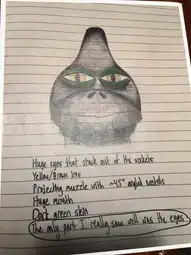 Huge eyes that stuck out of its sockets
Yellow/Brown Iris
Projecting muzzle with ~45° angled nostrils
Huge mouth
Dark green skin
The only part I really saw well was the eyes